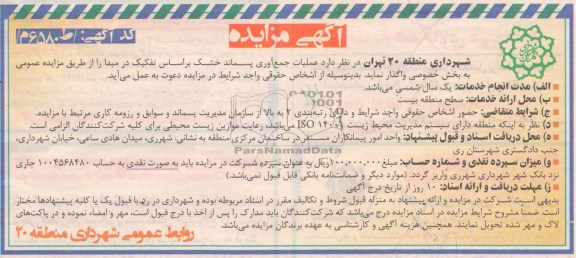 آگهی مزایده
کد آگهی: (ط.۶۵۸۰م)
شهرداری منطقه ۲۰ تهران در نظر دارد عملیات جمع‌آوری پسماند خشک براساس تفکیک در مبدا را از طریق مزایده عمومی
به بخش خصوصی واگذار نماید. بدینوسیله از اشخاص حقوقی واجد شرایط در مزایده دعوت به عمل می‌آید.
الف) مدت انجام خدمات: یک سال شمسی می‌باشد.
ب) محل ارائه خدمات: سطح منطقه بیست
ج) شرایط متقاضی: حضور اشخاص حقوقی واجد شرایط و دارای رتبه‌بندی ۲ به بالا از سازمان مدیریت پسماند و سوابق و رزومه کاری مرتبط با مزایده.
د) نظر به اینکه منطقه دارای سیستم مدیریت محیط زیست ISO ۱۴۰۰۱ می‌باشد، رعایت موازین زیست محیطی برای کلیه شرکت‌کنندگان الزامی است.
ه) محل دریافت اسناد و قبول پیشنهاد: واحد امور پیمانکاران مستقر در ساختمان مرکزی منطقه به نشانی: شهرری، میدان هادی ساعی، خیابان شهرداری،
جنب دادگستری شهرستان ری
و) میزان سپرده نقدی و شماره حساب: مبلغ ۱۰۰,۰۰۰,۰۰۰ ریال به عنوان سپرده شرکت در مزایده باید به صورت نقدی به حساب ۱۰۰۴۵۶۸۴۸۰ جاری
نزد بانک شهر شهرداری شهرری واریز گردد. (موارد دیگر و ضمانت‌نامه بانکی قابل قبول نمی‌باشد)
ز) مهلت دریافت و ارائه اسناد: ۱۰ روز از تاریخ درج آگهی
بدیهی است شرکت در مزایده و ارائه پیشنهاد به منزله قبول شروط و تکالیف مقرر در اسناد مربوطه بوده و شهرداری در رد یا قبول یک یا کلیه پیشنهادها مختار
است. ضمناً مشروح شرایط مزایده در اسناد مزایده درج می‌باشد که شرکت‌کنندگان باید مدارک را پس از اخذ با درج قبول است، مهر و امضاء نموده و در پاکت‌های
لاک و مهر شده تحویل نمایند. همچنین هزینه آگهی و کارشناسی به عهده برندگان مزایده می‌باشد.
روابط عمومی شهرداری منطقه ۲۰
ParsNamadData